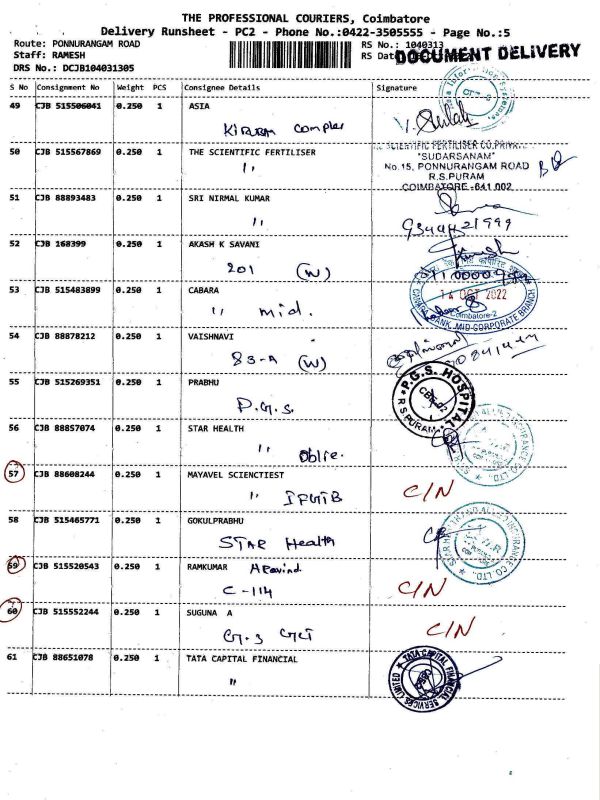 THE PROFESSIONAL COURIERS, Coimbatore
Delivery Runsheet - PC2 - Phone No.:0422-3505555 - Page No.:5
Route: PONNURANGAM ROAD
Staff: RAMESH
DRS No.: DCJB104031305
RS No.: 1040313
RS Dat
DOCUMENT DELIVERY
S No Consignment No Weight PCS Consignee Details Signature
49 CJB 515506041 0.250 1 ASIA
50 CJB 515567869 0.250 1 THE SCIENTIFIC FERTILISER
"
SCIENTIFIC FERTILISER CO.PRIVA
"SUDARSANAM"
No.15, PONNURANGAM ROAD
R.S.PURAM
COIMBATORE-641 002
51 CJB 88893483 0.250 1 SRI NIRMAL KUMAR
"
52 CJB 168399 0.250 1 AKASH K SAVANI
201 (W)
53 CJB 515483899 0.250 1 CABARA
" mid.
14 OCT 2022
Coimbatore-2
BANK, MID CORPORATE BRANCH
54 CJB 88878212 0.250 1 VAISHNAVI
83-A (W)
55 CJB 515269351 0.250 1 PRABHU
P.G.S.
P.G.S. HOSPITAL
R.S.PURAM
56 CJB 88857074 0.250 1 STAR HEALTH
"
57 CJB 88608244 0.250 1 MAYAVEL SCIENCTIEST
" IFGTB C/N
58 CJB 515465771 0.250 1 GOKULPRABHU
STAR Health
STAR HEALTH AND ALLIED INSURANCE CO.LTD.
59 CJB 515520543 0.250 1 RAMKUMAR Aravind
C-114 C/N
60 CJB 515552244 0.250 1 SUGUNA A
C/N
61 CJB 88651078 0.250 1 TATA CAPITAL FINANCIAL
"
TATA CAPITAL FINANCIAL SERVICES LIMITED